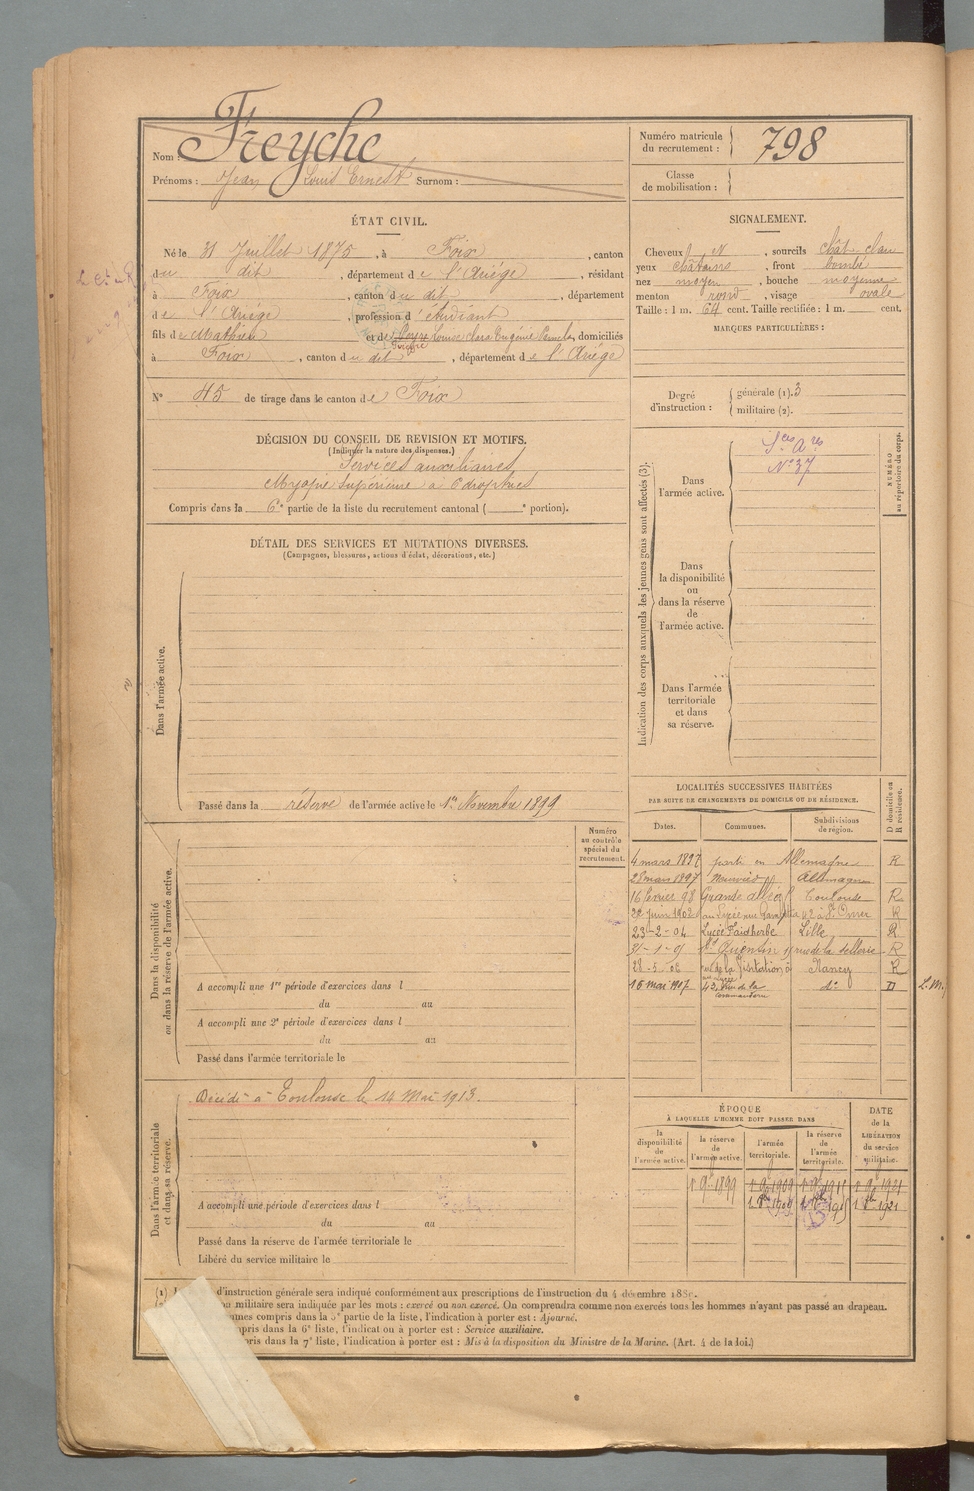 Nom : Freyche
Prénoms : Jean Louis Ernest Surnom :
Numéro matricule du recrutement : 798
Classe de mobilisation :
ÉTAT CIVIL.
Né le 31 Juillet 1875, à Foix, canton
du dit, département de l'Ariège, résidant
à Foix, canton du dit, département
de l'Ariège, profession d'étudiant
fils de Mathieu et de Louise Clara Eugénie, domiciliés
à Foix, canton du dit, département de l'Ariège
N° 45 de tirage dans le canton de Foix
SIGNALEMENT.
Cheveux N, sourcils chât clair
yeux châtains, front bombé
nez moyen, bouche moyenne
menton rond, visage ovale
Taille : 1 m. 64 cent. Taille rectifiée : 1 m. cent.
MARQUES PARTICULIÈRES :
Degré d'instruction : générale (1). 3
militaire (2).
DÉCISION DU CONSEIL DE REVISION ET MOTIFS.
(Indiquer la nature des dispenses.)
Services auxiliaires
Myopie supérieure à 6 dioptries
Compris dans la 6e partie de la liste du recrutement cantonal ( e portion).
DÉTAIL DES SERVICES ET MUTATIONS DIVERSES.
(Campagnes, blessures, actions d'éclat, décorations, etc.)
Dans l'armée active.
Passé dans la réserve de l'armée active le 1er Novembre 1899
Indication des corps auxquels les jeunes gens sont affectés (3).
Dans l'armée active.
Sces Ares
N° 37
NUMÉRO au répertoire du corps.
Dans la disponibilité ou dans la réserve de l'armée active.
Dans l'armée territoriale et dans sa réserve.
Dans la disponibilité ou dans la réserve de l'armée active.
Numéro au contrôle spécial du recrutement.
A accompli une 1re période d'exercices dans l
du au
A accompli une 2e période d'exercices dans l
du au
Passé dans l'armée territoriale le
LOCALITÉS SUCCESSIVES HABITÉES
PAR SUITE DE CHANGEMENTS DE DOMICILE OU DE RÉSIDENCE.
Dates. Communes. Subdivisions de région. D domicile ou R résidence.
4 mars 1897 parti en Allemagne R
28 mars 1897 Allemagne
16 février 98 Toulouse R
22 juin 1902 St Omer R
23-2-04 Lycée Faidherbe Lille R
31-1-05 St Quentin rue de la Sellerie R
28-5-06 rue de la Visitation Nancy R
16 mai 1907 43, rue de la Commanderie do D
Dans l'armée territoriale et dans sa réserve.
Décédé à Toulouse le 14 Mai 1913.
A accompli une période d'exercices dans l
du au
Passé dans la réserve de l'armée territoriale le
Libéré du service militaire le
ÉPOQUE
À LAQUELLE L'HOMME DOIT PASSER DANS
la disponibilité de l'armée active.
la réserve de l'armée active.
l'armée territoriale.
la réserve de l'armée territoriale.
DATE de la LIBÉRATION du service militaire.
1er 9bre 1899 1er 9bre 1909 1er 9bre 1915 1er 9bre 1921
1er 8bre 1909 1er 8bre 1915 1er 8bre 1921
(1) d'instruction générale sera indiqué conformément aux prescriptions de l'instruction du 4 décembre
militaire sera indiquée par les mots : exercé ou non exercé. On comprendra comme non exercés tous les hommes n'ayant pas passé au drapeau.
compris dans la 5e partie de la liste, l'indication à porter est : Ajourné.
compris dans la 6e liste, l'indication à porter est : Service auxiliaire.
compris dans la 7e liste, l'indication à porter est : Mis à la disposition du Ministre de la Marine. (Art. 4 de la loi.)